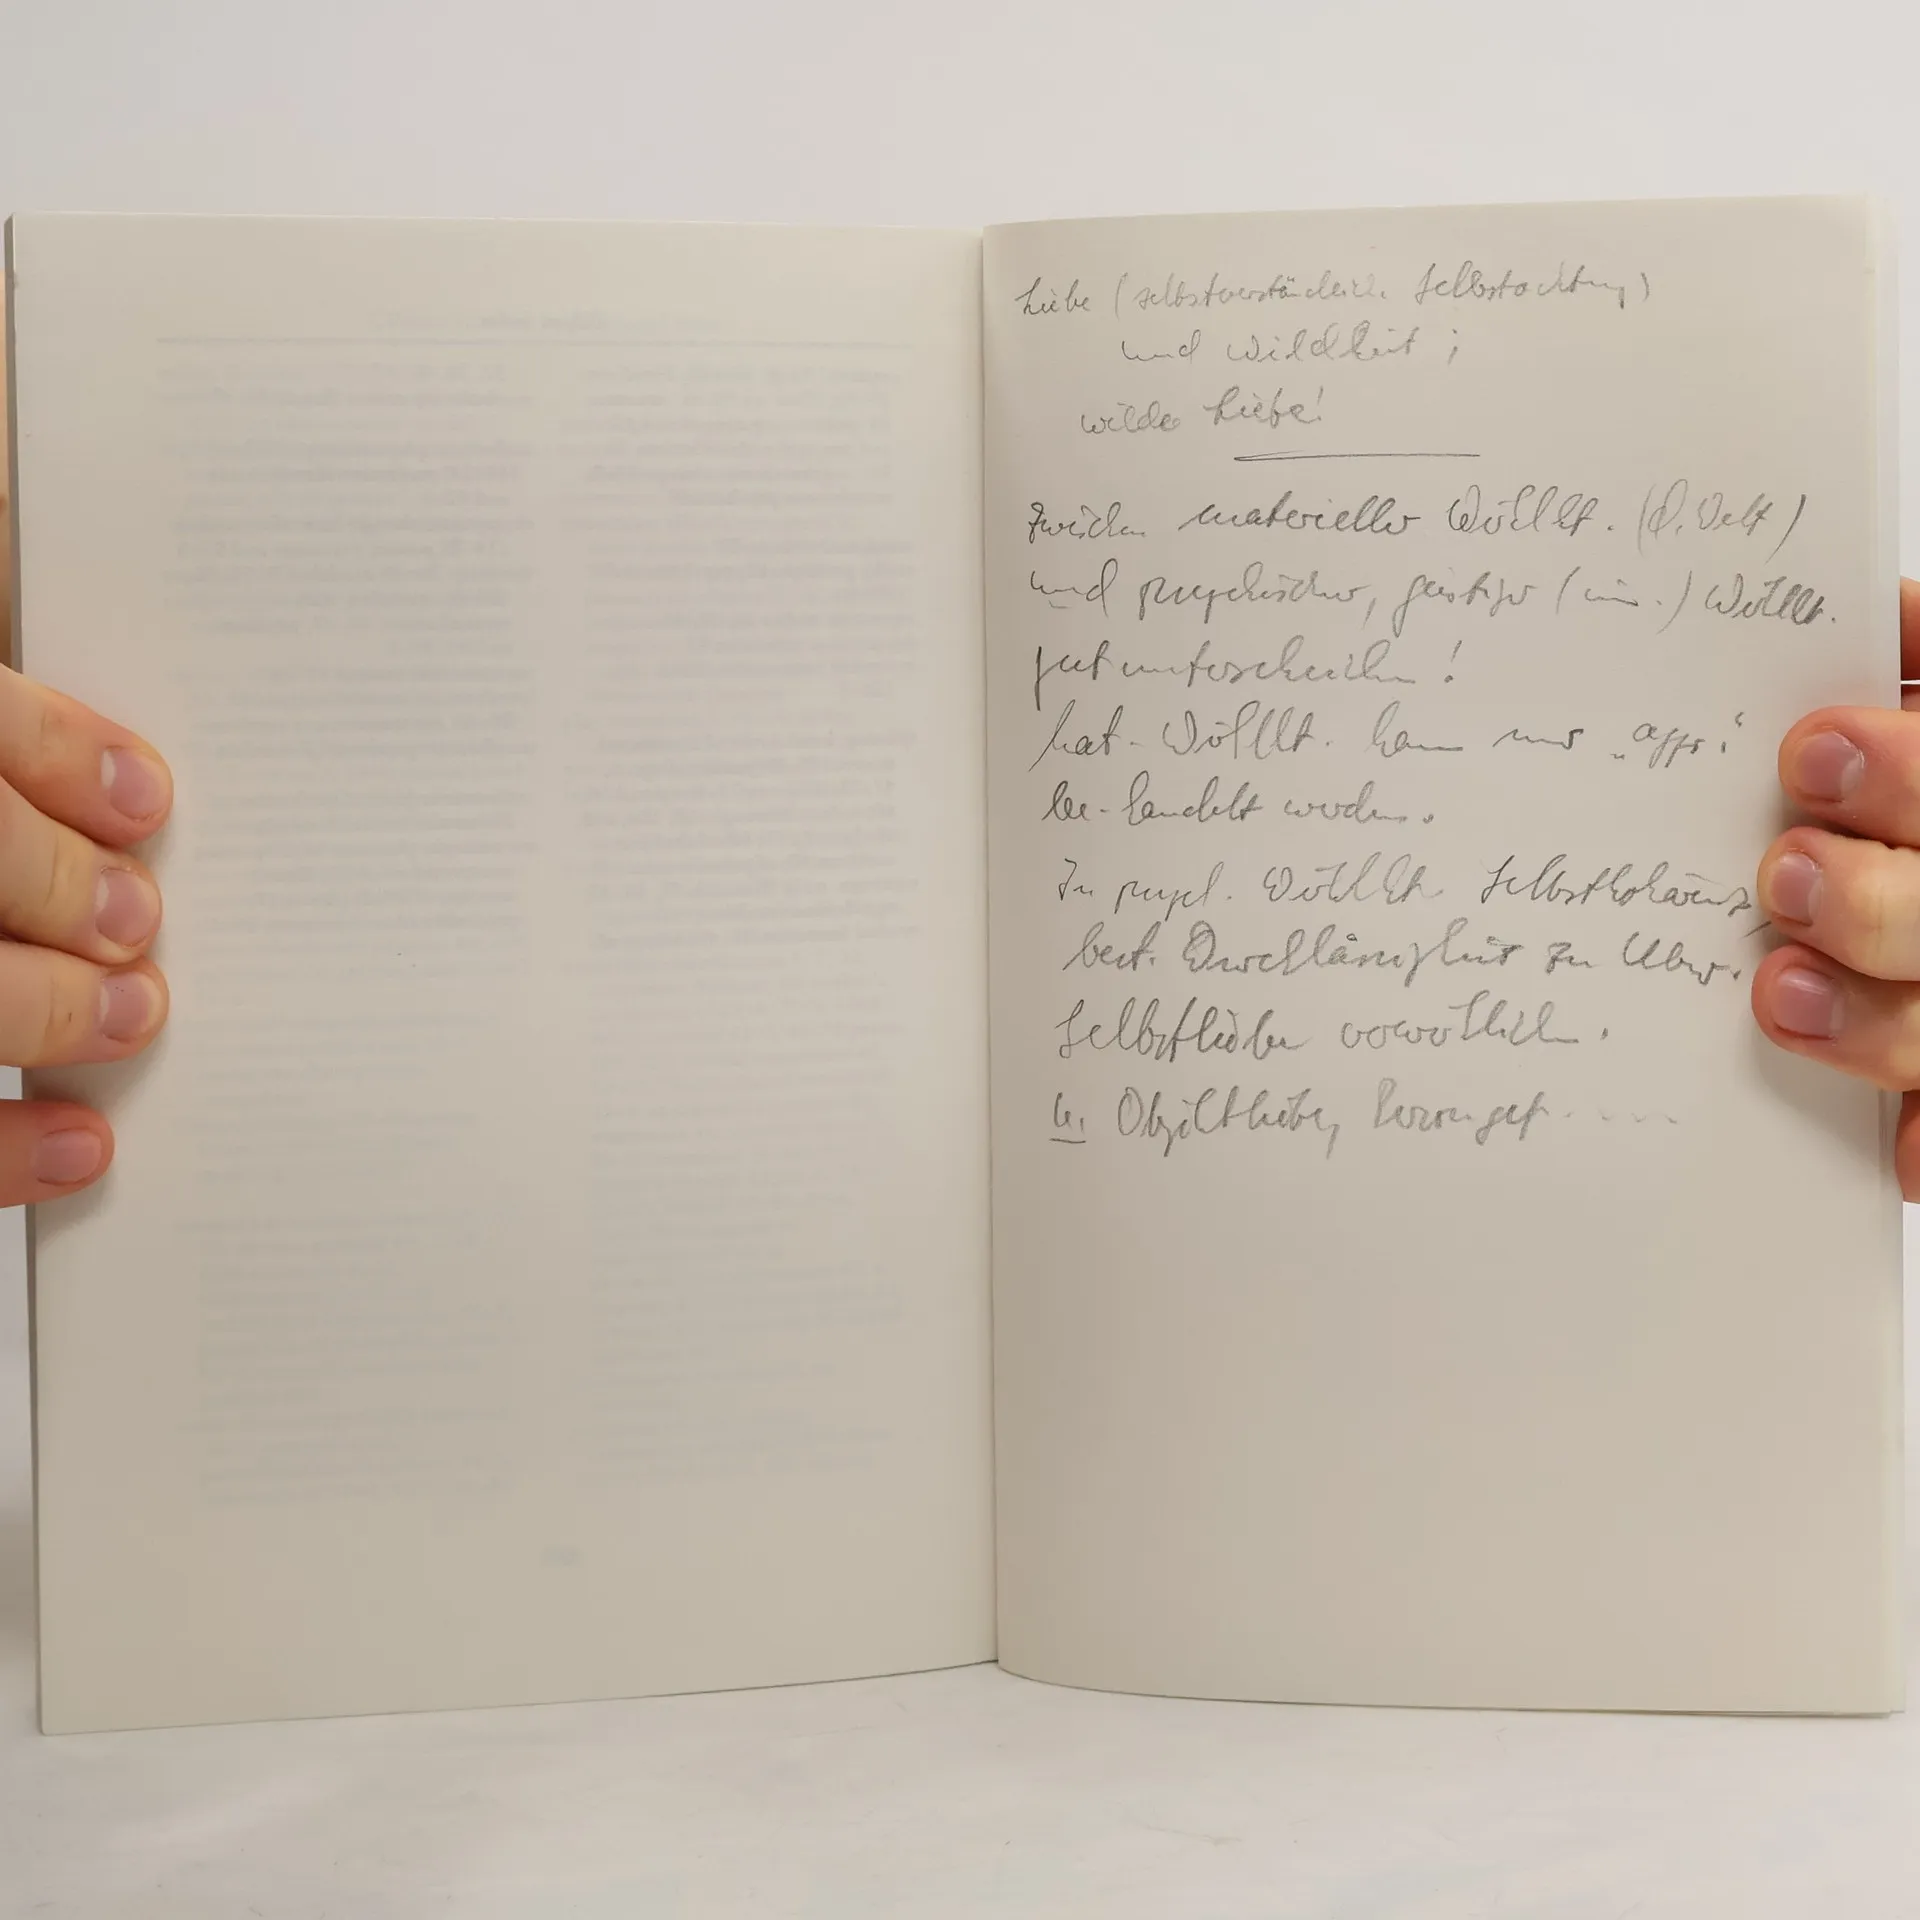 Liebe (selbstverständlich. Selbstachtung)
und Wildheit;
wilde Liebe!
Zwischen materieller Wirklkt. (d. Welt)
und psychischer, geistiger (inn.) Wirklkt.
gut unterscheiden!
Mat. Wirklkt. kann nur „aggr."
be-handelt werden.
In psych. Wirklkt. Selbstkohärenz,
best. Durchlässigkeit zu Ubw.
Selbstliebe verwirklichen.
u. Objektliebe,